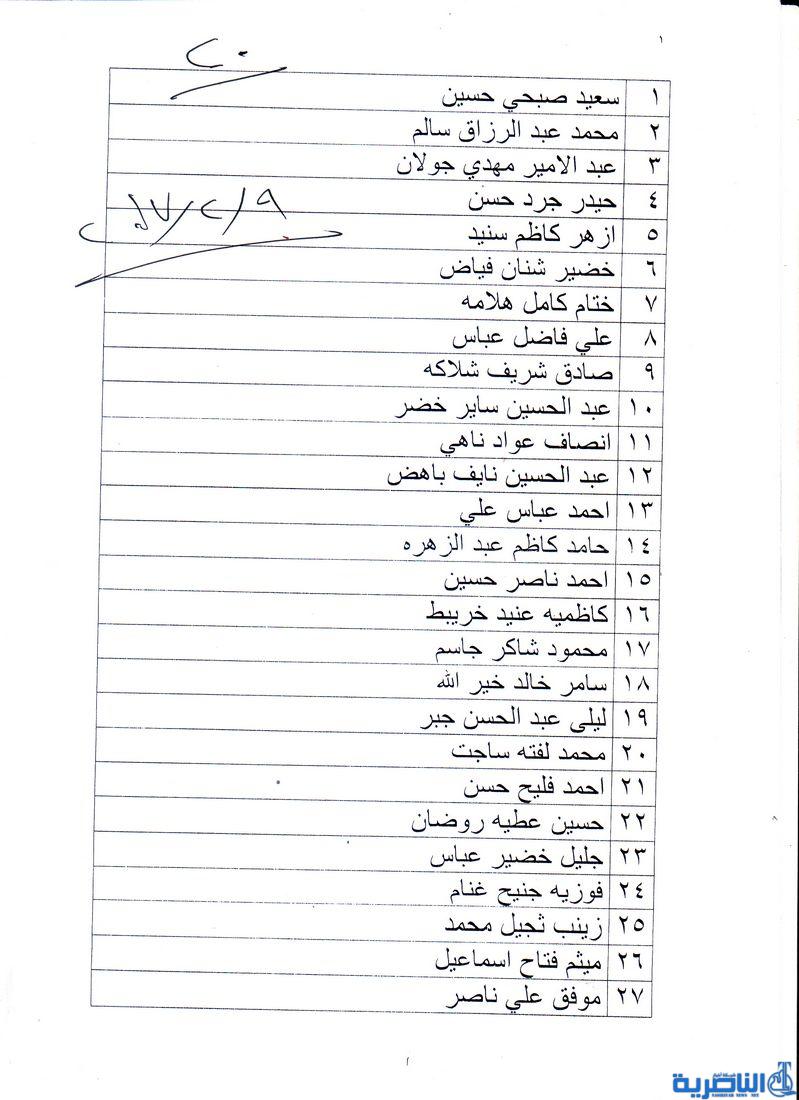 ١
٢٠
١ سعيد صبحي حسين
٢ محمد عبد الرزاق سالم
٣ عبد الامير مهدي جولان
٤ حيدر جرد حسن
٥ ازهر كاظم سنيد
٦ خضير شنان فياض
٧ ختام كامل هلامه
٨ علي فاضل عباس
٩ صادق شريف شلاكه
١٠ عبد الحسين ساير خضر
١١ انصاف عواد ناهي
١٢ عبد الحسين نايف باهض
١٣ احمد عباس علي
١٤ حامد كاظم عبد الزهره
١٥ احمد ناصر حسين
١٦ كاظميه عنيد خريبط
١٧ محمود شاكر جاسم
١٨ سامر خالد خير الله
١٩ ليلى عبد الحسن جبر
٢٠ محمد لفته ساجت
٢١ احمد فليح حسن
٢٢ حسين عطيه روضان
٢٣ جليل خضير عباس
٢٤ فوزيه جنيح غنام
٢٥ زينب ثجيل محمد
٢٦ ميثم فتاح اسماعيل
٢٧ موفق علي ناصر
١
شبكة اخبار
الناصرية
NASIRIYAH NEWS NET